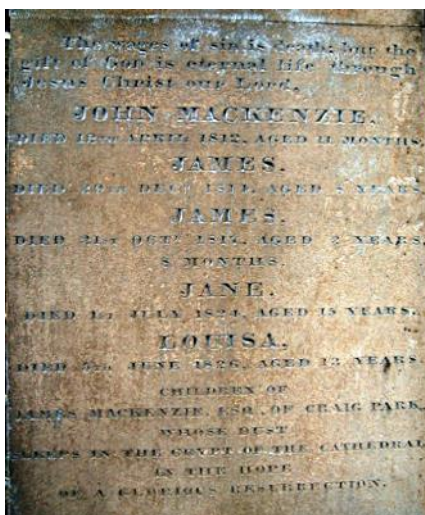 The wages of sin is death; but the
gift of God is eternal life through
Jesus Christ our Lord.
JOHN MACKENZIE.
DIED APRIL 1812, AGED 11 MONTHS,
JAMES.
DIED DECR AGED YEARS
JAMES.
DIED 21ST OCTR AGED 2 YEARS,
8 MONTHS.
JANE.
DIED JULY 1824, AGED 15 YEARS.
LOUISA,
DIED 5TH JUNE 1826, AGED 13 YEARS.
CHILDREN OF
JAMES MACKENZIE, ESQ. OF CRAIG PARK,
WHOSE DUST
SLEEPS IN THE CRYPT OF THE CATHEDRAL
IN THE HOPE
OF A GLORIOUS RESURRECTION.